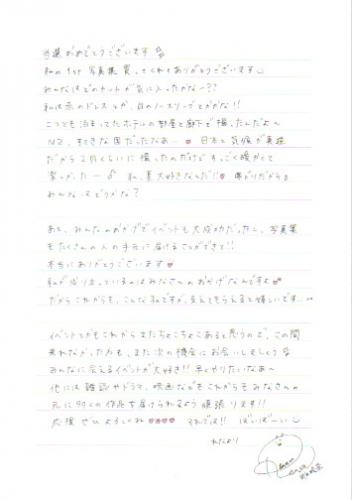 当選おめでとうございます
私の1st写真集買ってくれてありがとうございます
みんなはどのカットが気に入ったかな〜??
私は赤のドレスとか、白のノースリーブとかかな!!
こっちも泊まってたホテルの部屋と廊下で撮ったんだよ〜
NZ、すてきな国だったなあ… 日本と気候が真逆
だから2月くらいに撮ったのだけどすっごく暖かくて
私、夏大好きなんだ!!
みんなはどうかな?
あと、みんなのおかげでイベントも大成功だったし、写真集
もたくさんの人の手元に届けることができて!!
本当にありがとうございます
私が成り立っているのはみなさんのおかげなんですよ
だからこれからも、こんな私ですが、支えてもらえると嬉しいです
イベントとかもこれからまたちょこちょこあると思うので、この間
来れなかった方も、また次の機会にお会いしましょう
みんなに会えるイベントが大好き!! 早くやりたいなあ〜
他には雑誌やドラマ、映画などをこれからもみなさんの
元に沢山の作品を届けられるよう頑張ります!!
応援ぜひよろしくね それでは!! ばいばーい
より